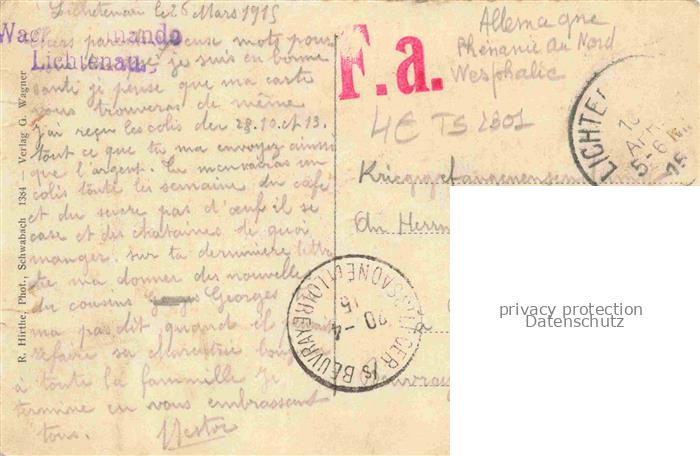 Lichtenau le 26 Mars 1915
Chers parents deux mots pour
je suis en bonne
santé je pense que ma carte
vous trouveras de même
j'ai reçu les colis der 28.10. et 13.
tout ce que tu ma envoyez ainsi
que l'argent. Tu menveras un
colis toute les semaine du café
et du sucre pas d'œuf il se
case et des chataines de quoi
manger. sur ta dernière lettre
tu ma donner des nouvelles
du cousins Georges
ma pas dit quand il
refaire sa
à toute la fammille Je
termine en vous embrassent
tous. Nestor
Wach mando
Lichtenau
R. Hirthe, Phot., Schwabach 1384 — Verlag G. Wagner
F.a.
Allemagne
Rhénanie du Nord
Wesphalie
4€ TS 2801
LICHTE
5-6 N
15
Kriegsgefangenensen
An Herrn
à
ST LEGER S BEUVRAY
SAONE ET LOIRE
20-4
15
privacy protection
Datenschutz